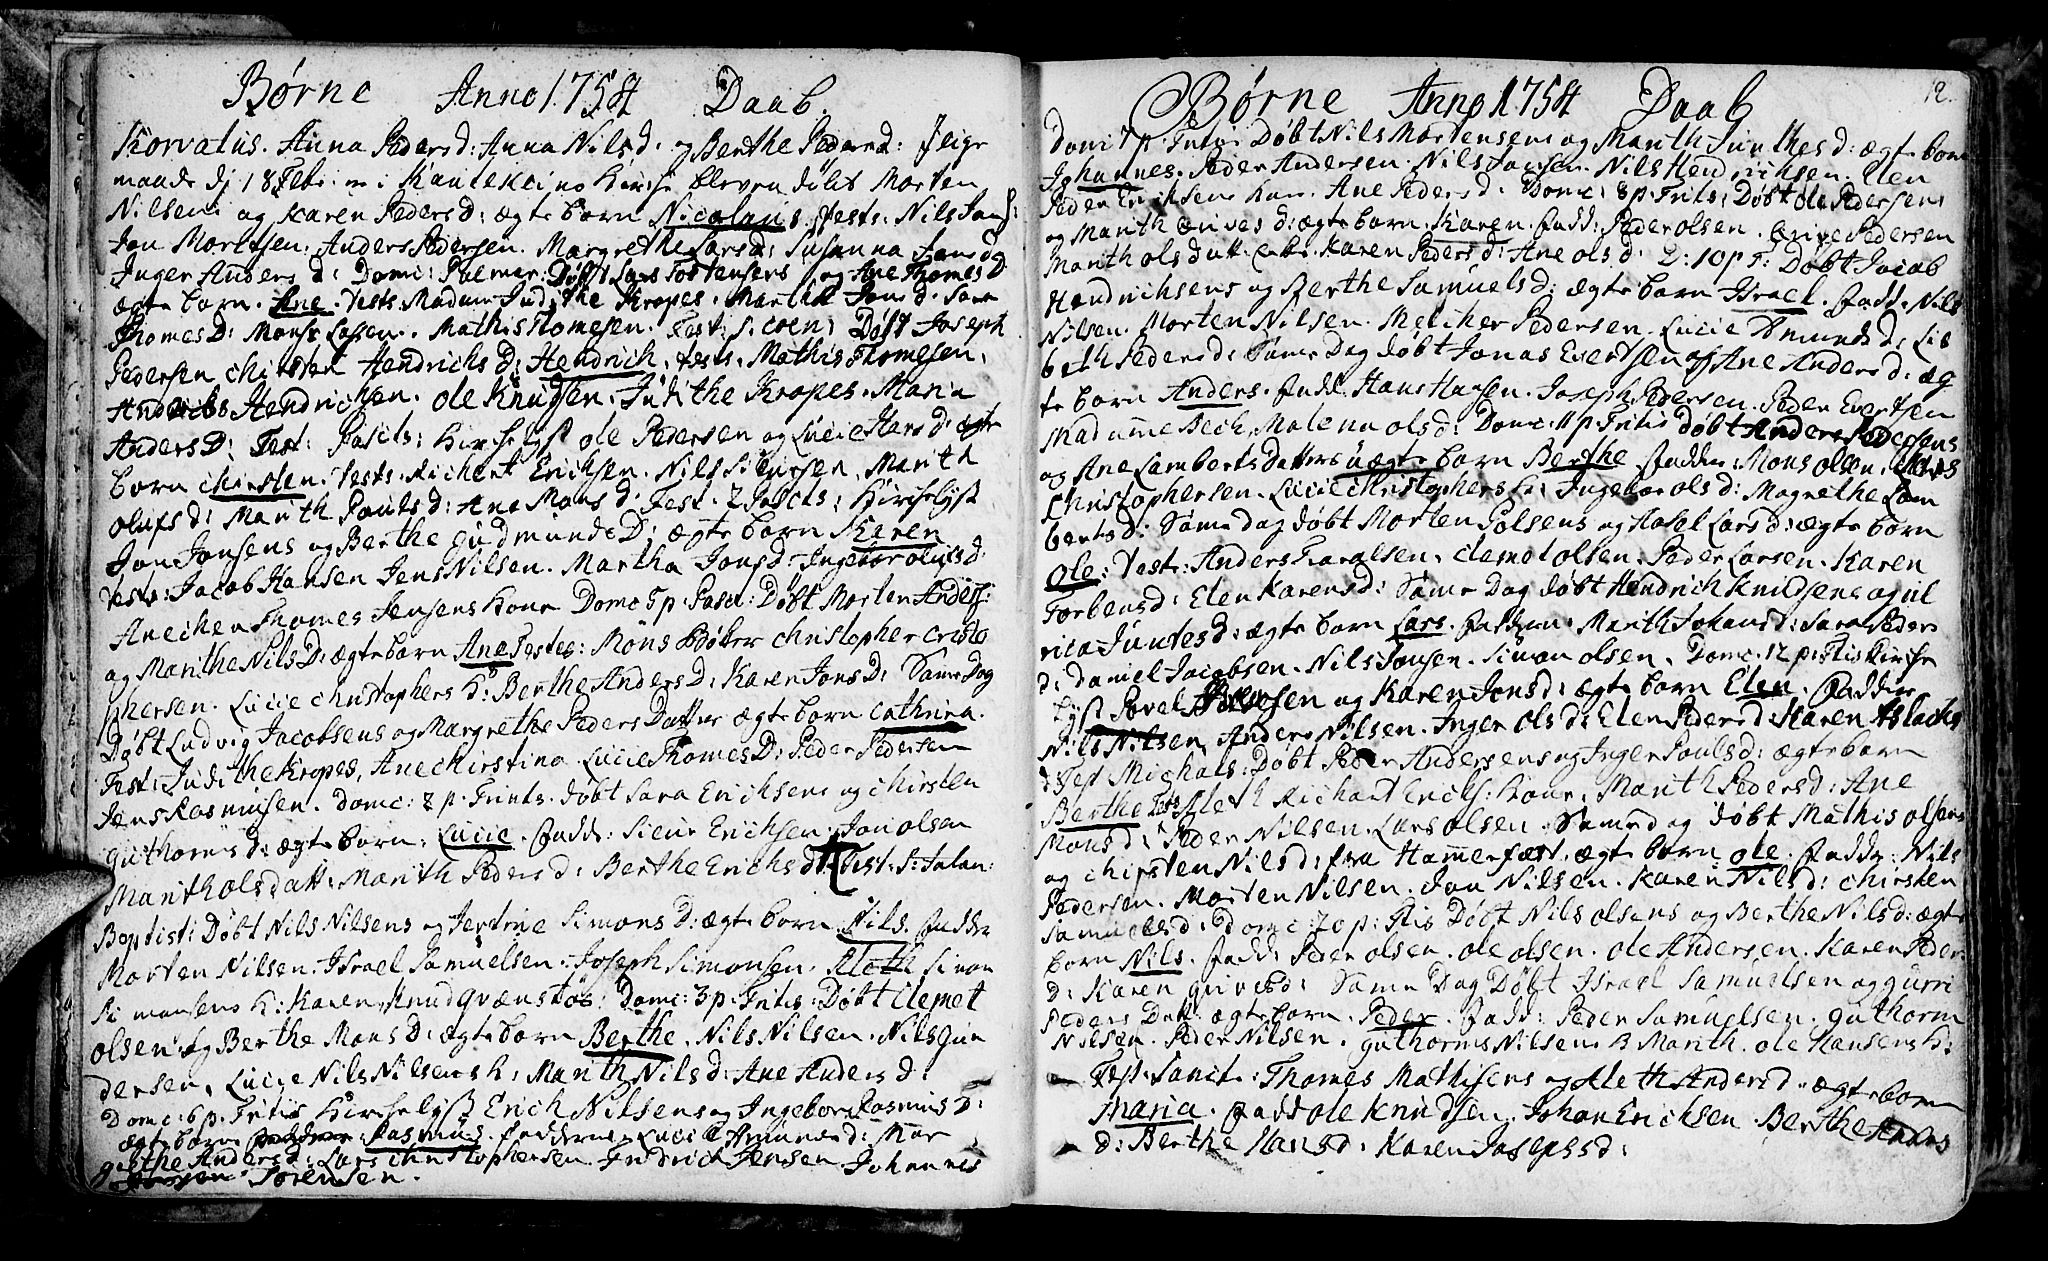 Børne Anno 1754 Daab.
Korvatus. Anna Pedersd: Anna Nilsd. og Berthe Pedersd: Jlige
maade dj 18 Febr. er i Kautekeino Kirche bleven døbt Morten
Nilsens og Karen Pedersd: ægte barn Nicolaus, Test: Nils Jons:
Jon Mortsen: Anders Pedersen. Margrethe Larsd: Susanna Jonsd
Inger Anders d: Domc: Palmar: Døbt Lars Tostensens og Ane Thomes D
ægte barn. Ane. Tests. Madame Judithe Kropes. Marthe Jonsd. Sara
Thomes D: Monss Lassen. Mathis Thomesen. Fest: Døbt Joseph
Pedersen Chirsten Hendrichs D: Hendrich, tests. Mathis Thomesen,
Hendrichsen. Ole Knudsen. Judithe Kropes. Maria
Anders D: Fest: Paschs: Kircheligst Ole Pedersen og Lucie Hans d: ægte
barn Chirsten. Tests. Richert Erichsen. Nils Siversen. Marith
Olufs d: Marith Pouls d: Ane Mons d: Fest. 2 Paschs: Kirchelyst
Jon Jonsens og Berthe Gudmunds D: ægte barn Keren
tests: Jacob Hansen Jens Nilsen. Martha Jonsd: Ingebor Olufsd:
Anechen Thomes Jensens Kone Domc 5 p. Pasch: Døbt Morten Anders:
og Marithe Nils D: ægte barn Ane Testes: Mons Bøker Christopher Cristo
phersen. Lucie Christophers K: Berthe Anders D: Karen Jons D: Same Dag
Døbt Ludvig Jacobsens og Margrethe Peders Datter ægte barn Cathrina.
Test: Judithe Kropes, Ane Chirstina. Lucie Thomes D: Peder Pedersen
Jens Rasmusen. Domc: 2 p. Trints. døbt Sara Erichsens og Chirsten
Guthorms d: ægte barn: Lucie. Fadd: Sieur Erichsen. Jon Olsen
Marith Olsdatt: Marith Peders d: Berthe Erichsd: Fest: S: Johan:
Baptist: Døbt Nils Nilsens og Jertrue Simons D: ægte barn Nils. Fadder
Morten Nilsen. Israel Samuelsen. Joseph Simonsen. Aleth Simon
Simonsens K: Karen Knud Qvænstøs: Domc: 3 p: Tritis: Døbt Clemet
Olsen og Berthe Mons d: ægte barn Berthe. Nils Nilsen. Nils Gun
dersen. Lucie Nils Nilsens K: Marith Nils d: Ane Anders d:
Domc: 6 p: Tritis Kirchelyst Erich Nilsens og Ingebor Rasmus D:
ægte barn Rasmus. Fadderne Lucie Amunds d: Mar
grethe Andersd: Lars Christophersen. Fridrich Jensen Johannes
Sørensen.
Børne Anno 1754 Daab 12.
Domc 7 p: Tritis Døbt Nils Mortensens og Marith Junthes d: ægte barn
Johannes. Peder Andersen. Nils Jonsen. Nils Hendrichsen. Elen
Peder Erichsens Kone. Ane Peders d: Domc: 8 p: Tritis: Døbt Ole Pedersens
og Marith Qrives d: ægte barn. Karen. Fadd: Peder Olsen. Qrive Pedersen
Marith Olsdatt. Karen Peders d: Ane Ols d: D: 10 p T: Døbt Jacob
Hendrichsens og Berthe Samuels d: ægte barn Israel. Fadd. Nils
Nilsen. Morten Nilsen. Melcher Pedersen. Lucie Amunds d: Lis
beth Peders d: Same Dag døbt Jonas Evertsen og Ane Anders d: æg
te barn Anders. Fadd. Hans Hansen. Joseph Pedersen. Peder Evertsen
Madamme Bech. Malena Ols d: Domc: 11 p Tritis døbt Anders Pedersens
og Ane Lamberts Datters uægte barn Berthe Fadder: Mons Olsen:
Christophersen. Lucie Christophers K: Ingebor Ols d: Magrethe Lam
berts d: Same dag døbt Morten Polsens og Aasel Lars d: ægte barn
Ole: Test: Anders Haralsen. Clemet Olsen. Peder Larsen. Karen
Torbens d: Elen Karens d: Same Dag døbt Hendrich Knudsens og Ul
rica Juntes d: ægte barn Lars. Fadderne Marith Johans d: Sara Peders
d: Daniel Jacobsen. Nils Jonsen. Simon Olsen. Domc. 12 p: Tis Kirche
lyst Povel og Karen Jons d: ægte barn Elen. Fadder
Nils Nilsen, Anders Nilsen. Inger Ols d: Elen Peders d: Karen Aslachs
d: Fest Michals: Døbt Peder Andersens og Inger Pouls d: ægte barn
Berthe Tests Aleth Richart Erichs: Kone, Marith Peders d: Ane
Mons d: Peder Nilsen. Lars Olsen. Same dag døbt Mathis Olsens
og Chirsten Nils d: fra Hammerfæst. ægte barn Ole. Fadd: Nils
Pedersen. Morten Nilsen. Jon Nilsen. Karen Nils d: Chirsten
Samuels d: Domc: 20 p: Tis Døbt Nils Olsens og Berthe Nils d: ægte
barn Nils. Fadd: Peder Olsen. Ole Olsen. Ole Andersen. Karen Peder
d: Karen Qrives d: Same Dag Døbt Israel Samuelsen og Gurri
Peders Datt: ægte barn. Peder. Fadd: Peder Samuelsen. Guthorm
Nilsen. Peder Nilsen. Guthorms Nilsens K Marith. Ole Hansens K:
Fest: Sanct: Thomes Mathisens og Aleth Anders d. ægte barn
Maria. Fadd Ole Knudsen. Johan Erichsen. Berthe Anders
d: Berthe Hans d. Karen Josephs d: